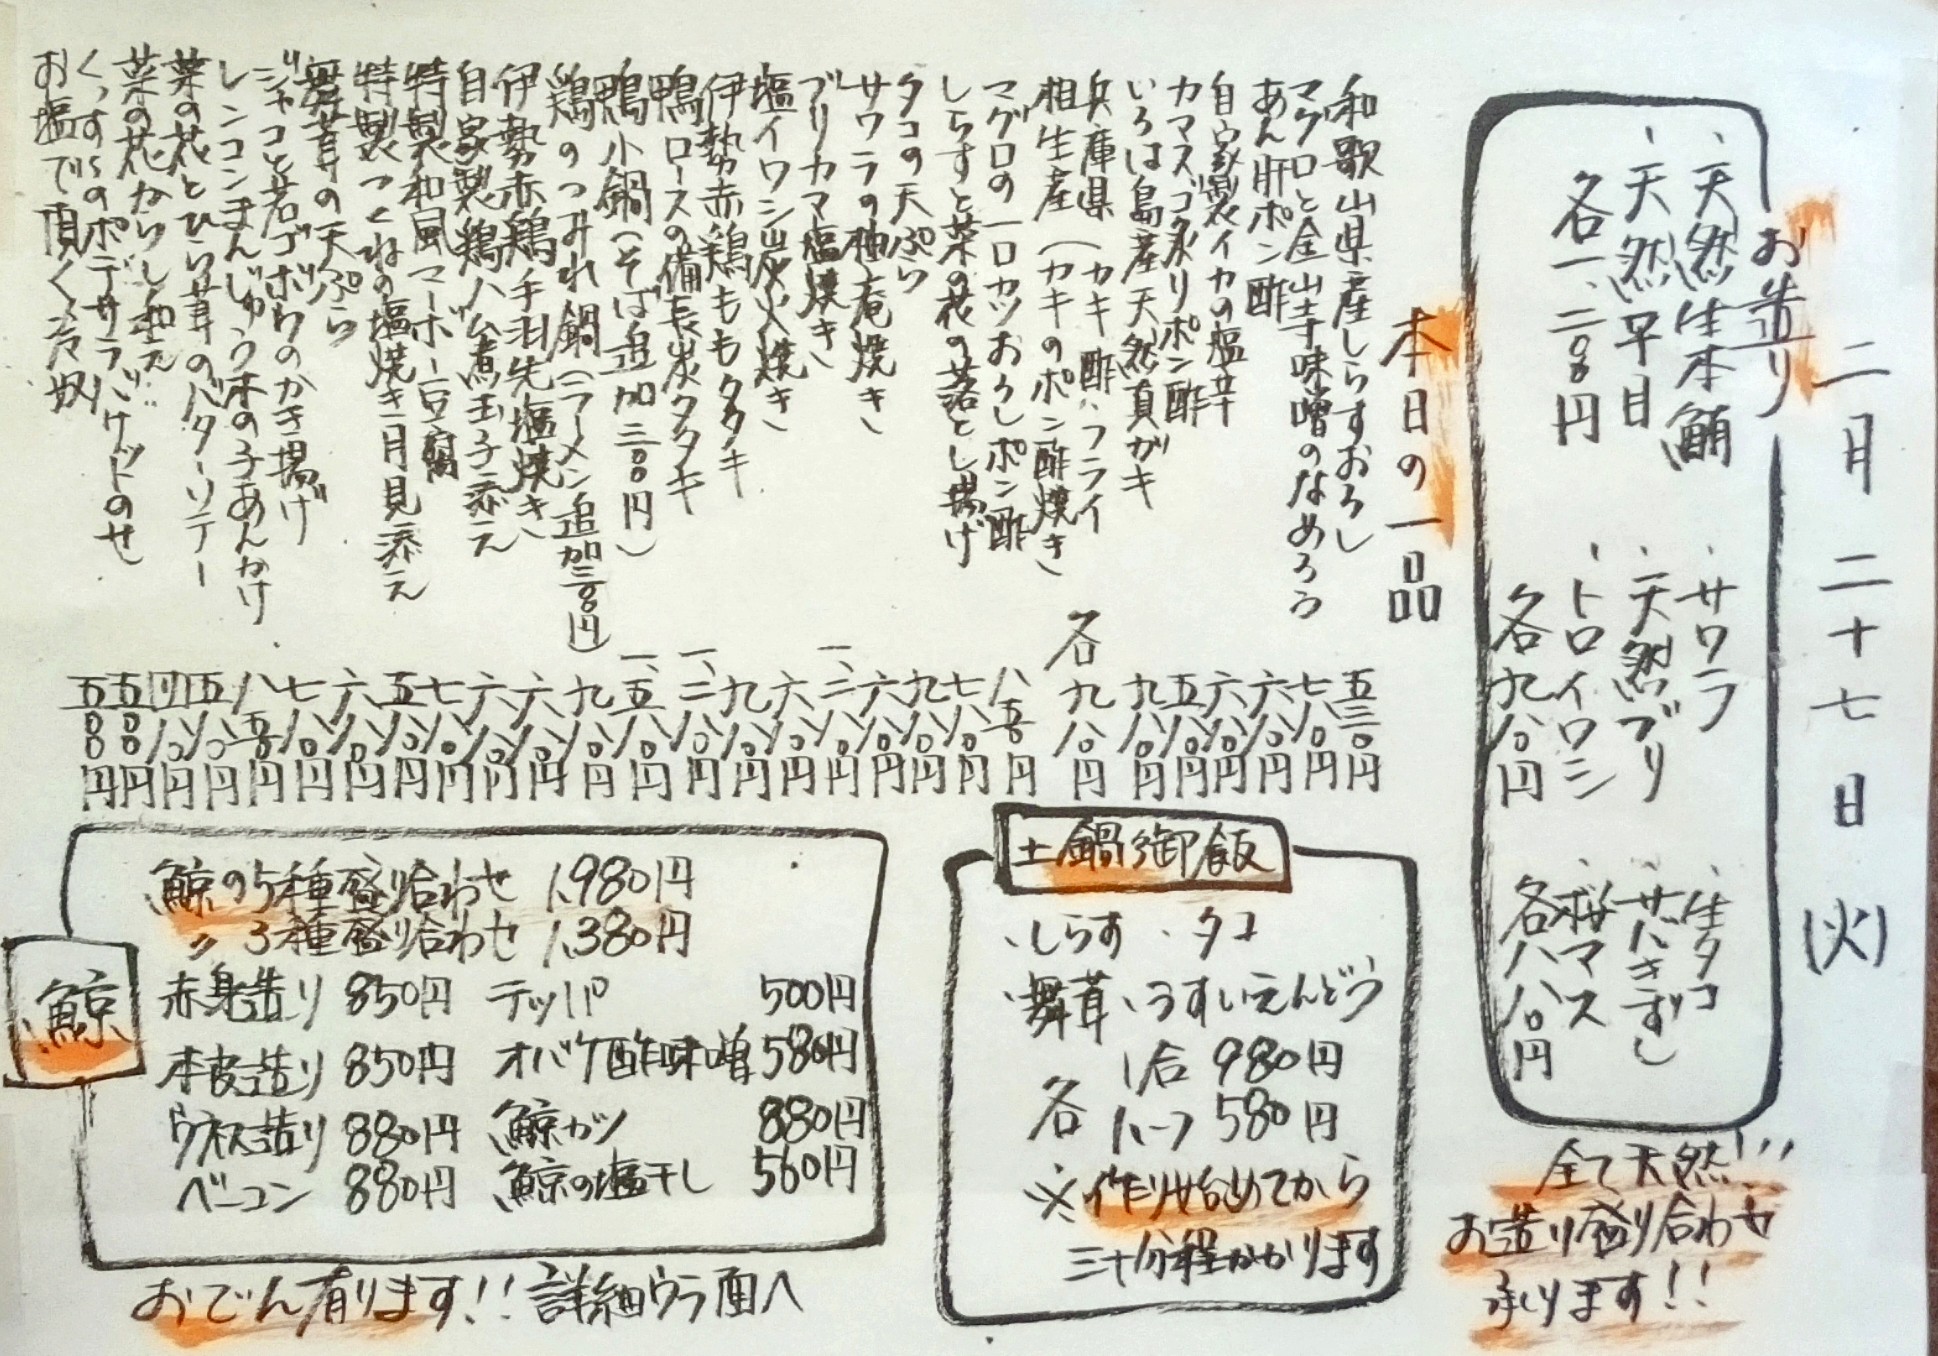 二月二十七日(火)
お造り
、天然生本鮪
、天然平目
各一、二〇〇円
、サワラ
、天然ブリ
、トロイワシ
各九八〇円
、生タコ
、サバきずし
、桜マス
各八八〇円
全て天然!!!
お造り盛り合わせ
承ります!!
本日の一品
和歌山県産しらすおろし 五三〇円
マグロと金山寺味噌のなめろう 七八〇円
あん肝ポン酢 六八〇円
自家製イカの塩辛 六八〇円
カマスゴ炙りポン酢 五八〇円
いろは島産天然真ガキ 九八〇円
兵庫県 (カキ酢・フライ
相生産 (カキのポン酢焼き 各九八〇円
マグロの一口カツおろしポン酢 八五〇円
しらすと菜の花の落とし揚げ 七八〇円
タコの天ぷら 九八〇円
サワラの柚庵焼き 六八〇円
ブリカマ塩焼き 一、二八〇円
塩イワシ炭火焼き 六八〇円
伊勢赤鶏ももタタキ 九八〇円
鴨ロースの備長炭タタキ 一、二八〇円
鴨小鍋(そば追加三〇〇円) 一、五八〇円
鶏のつみれ鍋(ラーメン追加三〇〇円) 九八〇円
伊勢赤鶏手羽先塩焼き 六八〇円
自家製鶏ハム煮玉子添え 六八〇円
特製和風マーボー豆腐 七八〇円
特製つくねの塩焼き月見添え 五八〇円
舞茸の天ぷら 六八〇円
ジャコと若ゴボウのかき揚げ 七八〇円
レンコンまんじゅう木の子あんかけ 八五〇円
菜の花とひら茸のバターソテー 五八〇円
菜の花からし和え 四八〇円
くっすぅのポテサラバケットのせ 五〇〇円
お塩で頂く冷奴 五〇〇円
土鍋御飯
、しらす 、タコ
、舞茸 、うすいえんどう
各 1合 980円
ハーフ 580円
※作り始めてから
三十分程かかります
鯨
鯨の5種盛り合わせ 1,980円
〃 3種盛り合わせ 1,380円
赤身造り 850円 テッパ 500円
本皮造り 850円 オバケ酢味噌 580円
ウネス造り 880円 鯨カツ 880円
ベーコン 880円 鯨の塩干し 560円
おでん有ります!! 詳細ウラ面へ